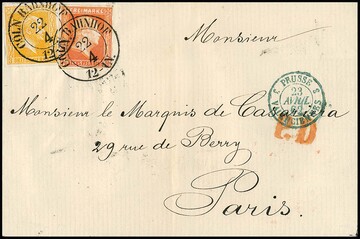 CÖLN BAHNHOF
22
4
12
CÖLN BAHNHOF
22
4
12-1N.
MARKE
Monsieur
Monsieur le Marquis de
29 rue de Berry
Paris.
PRUSSE
3
3
23
AVRIL
62
PD